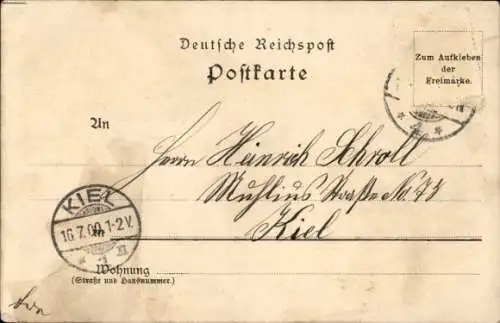 Deutsche Reichspost
Postkarte
Zum Aufkleben
der
Freimarke.
An
Herrn Heinrich Schroll
Muhlius Straße No. 73
Kiel
KIEL
16.7.00.1-2V.
Wohnung
(Straße und Hausnummer.)